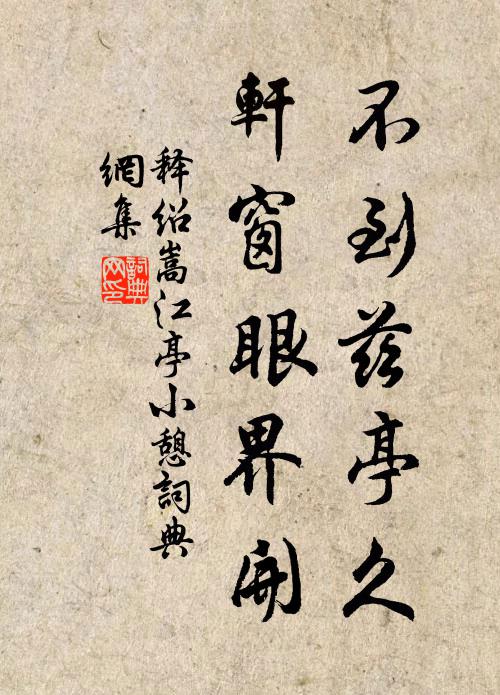 不到茲亭久
軒窗眼界開
释紹嵩江亭小憩詞典
網集
詞典网印